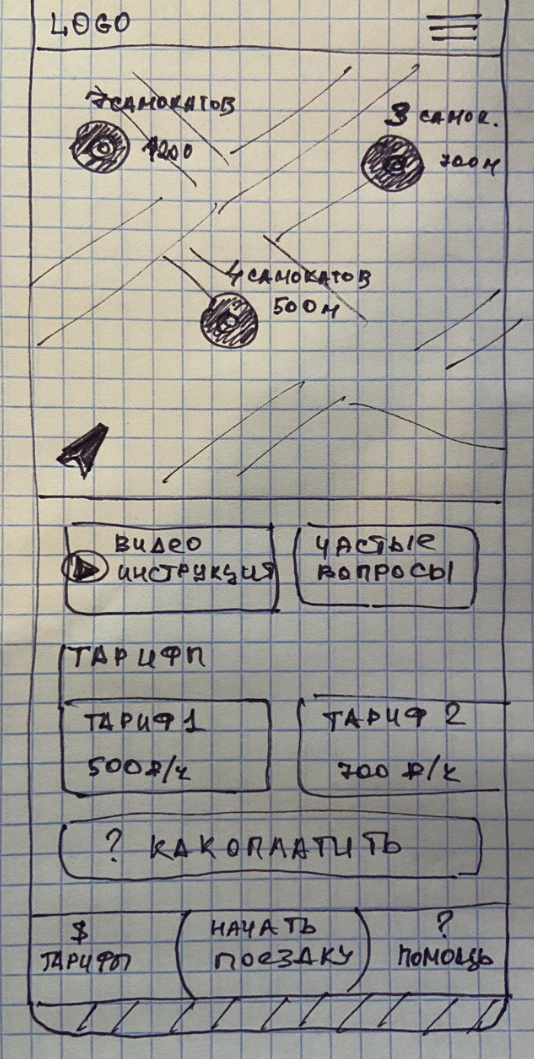 LOGO
7 САМОКАТОВ
1200
3 САМОК.
700 М
4 САМОКАТОВ
500 М
ВИДЕО
ИНСТРУКЦИЯ
ЧАСТЫЕ
ВОПРОСЫ
ТАРИФЫ
ТАРИФ 1
500 ₽/ч
ТАРИФ 2
700 ₽/ч
? КАК ОПЛАТИТЬ
$
ТАРИФЫ
НАЧАТЬ
ПОЕЗДКУ
?
ПОМОЩЬ